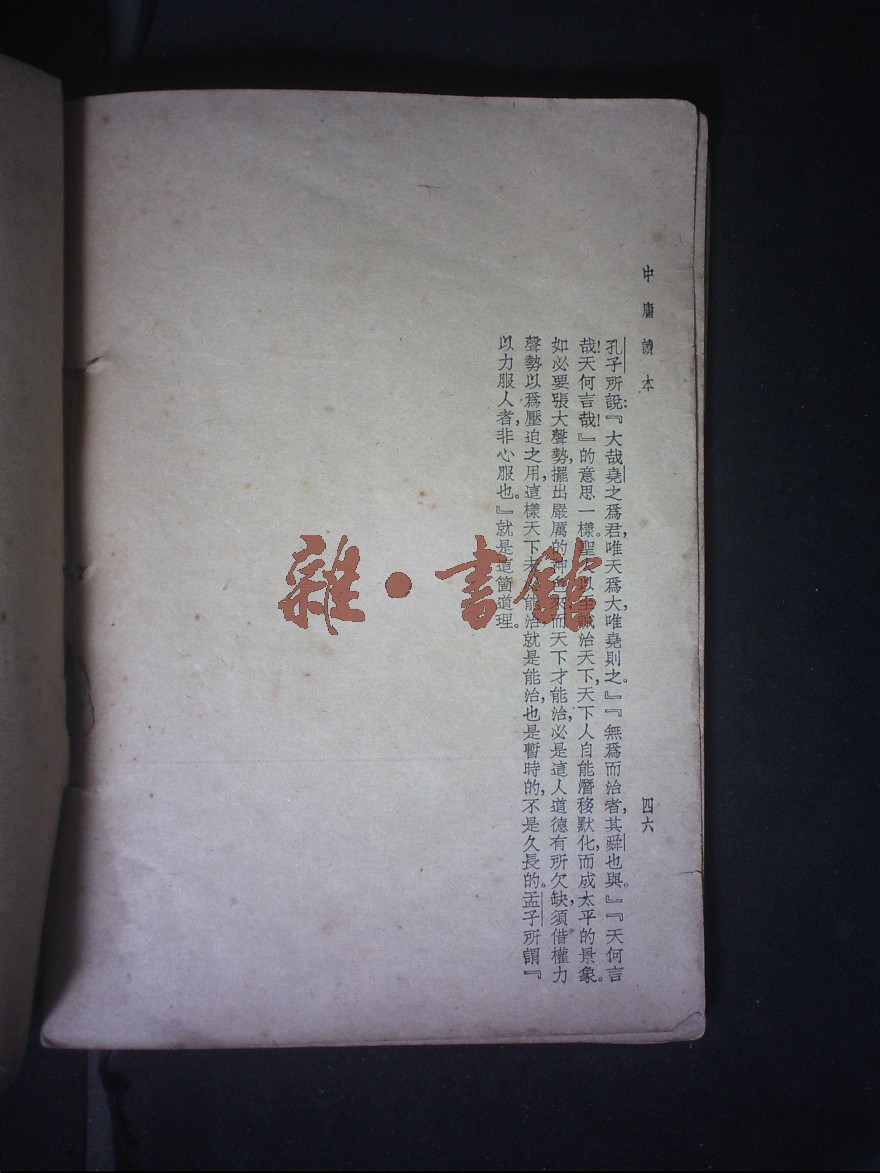 中庸讀本
四六
孔子所說：『大哉堯之爲君，唯天爲大，唯堯則之。』『無爲而治者，其舜也與。』『天何言
哉！天何言哉！』的意思一樣。聖 以至誠治天下，天下人自能潛移默化，而成太平的景象。
如必要張大聲勢，擺出嚴厲的神 來，而天下才能治，必是這人道德有所欠缺，須借權力
聲勢以爲壓迫之用，這樣天下未 能治，就是能治，也是暫時的，不是久長的。孟子所謂『
以力服人者，非心服也。』就是這箇道理。
雜·書館